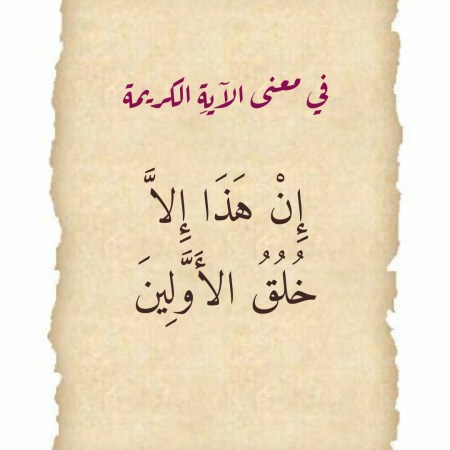 في معنى الآيةِ الكريمة
إِنْ هَذَا إِلاَّ
خُلُقُ الأَوَّلِينَ